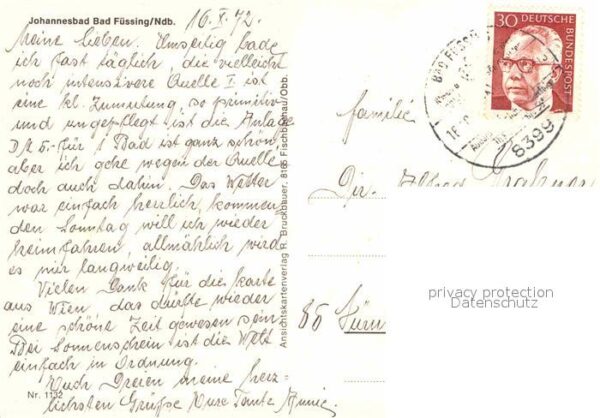 Johannesbad Bad Füssing/Ndb.
16. X. 72.
Meine Lieben. Umseitig bade
ich fast täglich, die vielleicht
noch intensivere Quelle I ist
eine kl. Zumutung, so primitiv
und ungepflegt ist die Anlage
DM 5.- für 1 Bad ist ganz schön
aber ich gehe wegen der Quelle
doch auch dahin. Das Wetter
war einfach herrlich, kommen-
den Sonntag will ich wieder
heimfahren, allmählich wird
es mir langweilig.
Vielen Dank für die Karte
aus Wien, das dürfte wieder
eine schöne Zeit gewesen sein
Bei Sonnenschein ist die Welt
einfach in Ordnung.
Euch Dreien meine herz-
lichsten Grüße Eure Tante Annie.
Nr. 1132
Ansichtskartenverlag R. Bruckbauer, 8165 Fischbachau/Obb.
30 DEUTSCHE
BUNDESPOST
BAD FÜSSING
8399
Familie
Dir. Alfred
85 Nürn
privacy protection
Datenschutz